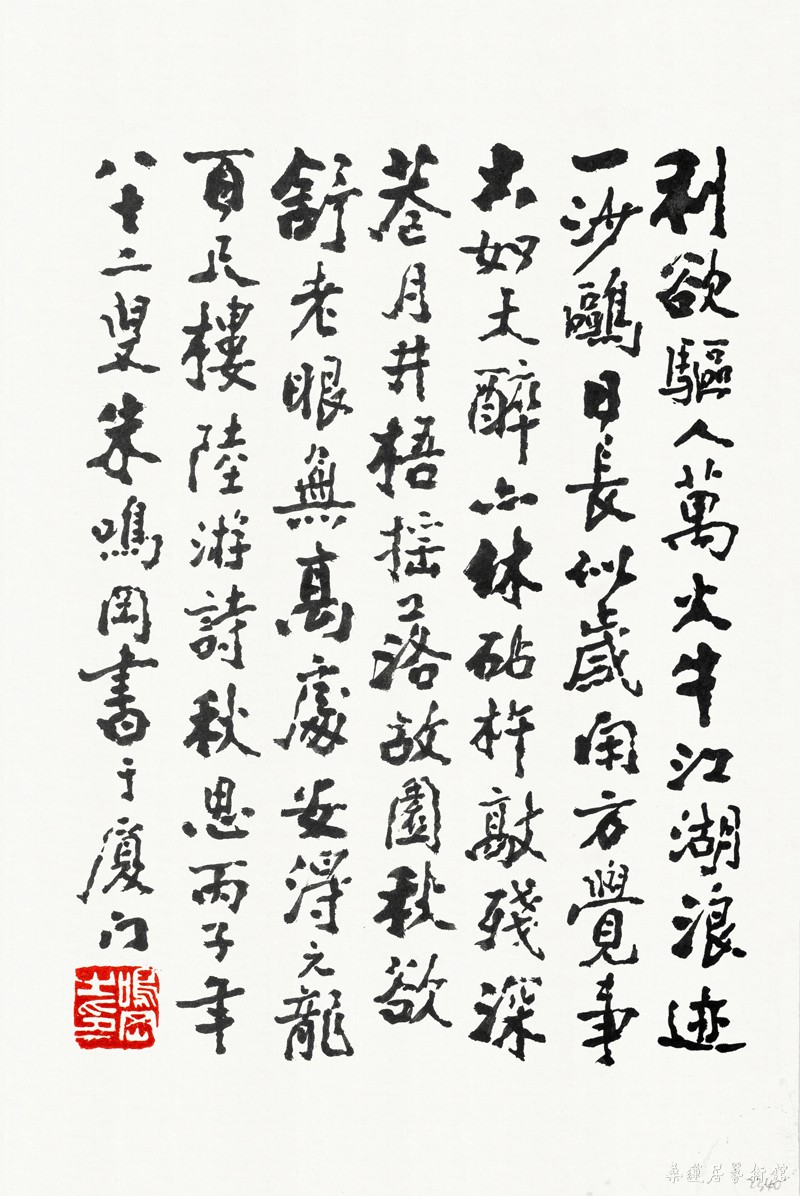 利欲驅人萬火牛江湖浪迹
一沙鷗日長似歲閑方覺事
大如天醉亦休砧杵敲殘深
巷月井梧摇落故園秋欲
舒老眼無高處安得元龍
百尺樓陸游詩秋思丙子年
八十二叟朱鳴岡書于廈门
鳴岡之印